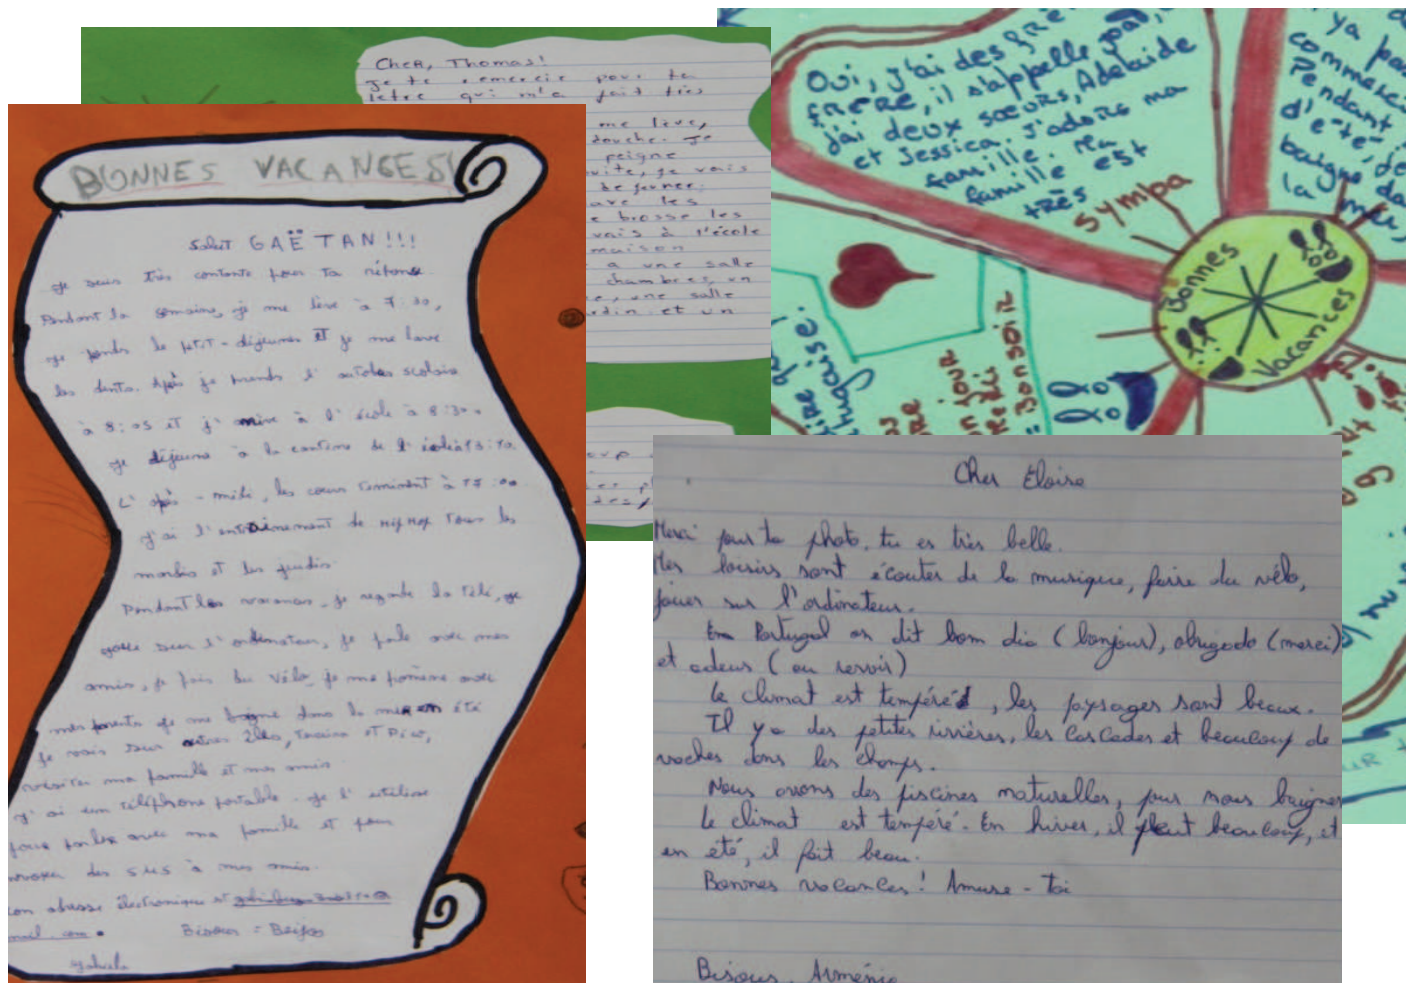 BONNES VACANCES!
Salut GAËTAN!!!
Je suis très contente pour ta réponse.
Pendant la semaine, je me lève à 7:30,
je prends le petit-déjeuner et je me lave
les dents. Après je prends l'autobus scolaire
à 8:05 et j'arrive à l'école à 8:30.
je déjeune à la cantine de l'école à 13:10.
L'après-midi, les cours terminent à 17:00
j'ai l'entrainement de HipHop tous les
mardis et les jeudis.
Pendant les vacances, je regarde la télé, je
joue sur l'ordinateur, je parle avec mes
amis, je fais du vélo, je me promène avec
mes parents je me baigne dans la mer en été
je vais sur autres îles, Terceira et Pico,
visiter ma famille et mes amis.
j'ai un téléphone portable. je l'utilise
pour parler avec ma famille et pour
envoyer des SMS à mes amis.
mon adresse électronique est
mail.com.
Bisous = Beijos
Gabriela
Cher, Thomas!
Je te remercie pour ta
letre qui m'a fait très
me lève,
douche. Je
peigne
vite, je vais
de jeuner.
lave les
e brosse les
vais à l'école
maison
a une salle
chambres, un
e, une salle
rdin et un
oup
Oui, j'ai des
FRÈRE, il s'appelle
j'ai deux sœurs, Adelaide
et Jessica. J'adore ma
famille. Ma
famille est
très
sympa
ya pa
commence
Pendant
d'été, je
baigne da
la mer,
Bonnes
Vacances
dire
tugaise.
onjour
Bonsoir
Cher Eloise
Merci pour ta photo. tu es très belle.
Mes loisirs sont écouter de la musique, faire du vélo,
jouer sur l'ordinateur.
En Portugal on dit bom dia (bonjour), obrigado (merci)
et adeus (au revoir)
Le climat est tempéré, les paysages sont beaux.
Il y a des petites rivières, les cascades et beaucoup de
vaches dans les champs.
Nous avons des piscines naturelles, pour nous baigner
Le climat est tempéré. En hiver, il pleut beaucoup, et
en été, il fait beau.
Bonnes vacances! Amuse-toi
Bisous, Arménia